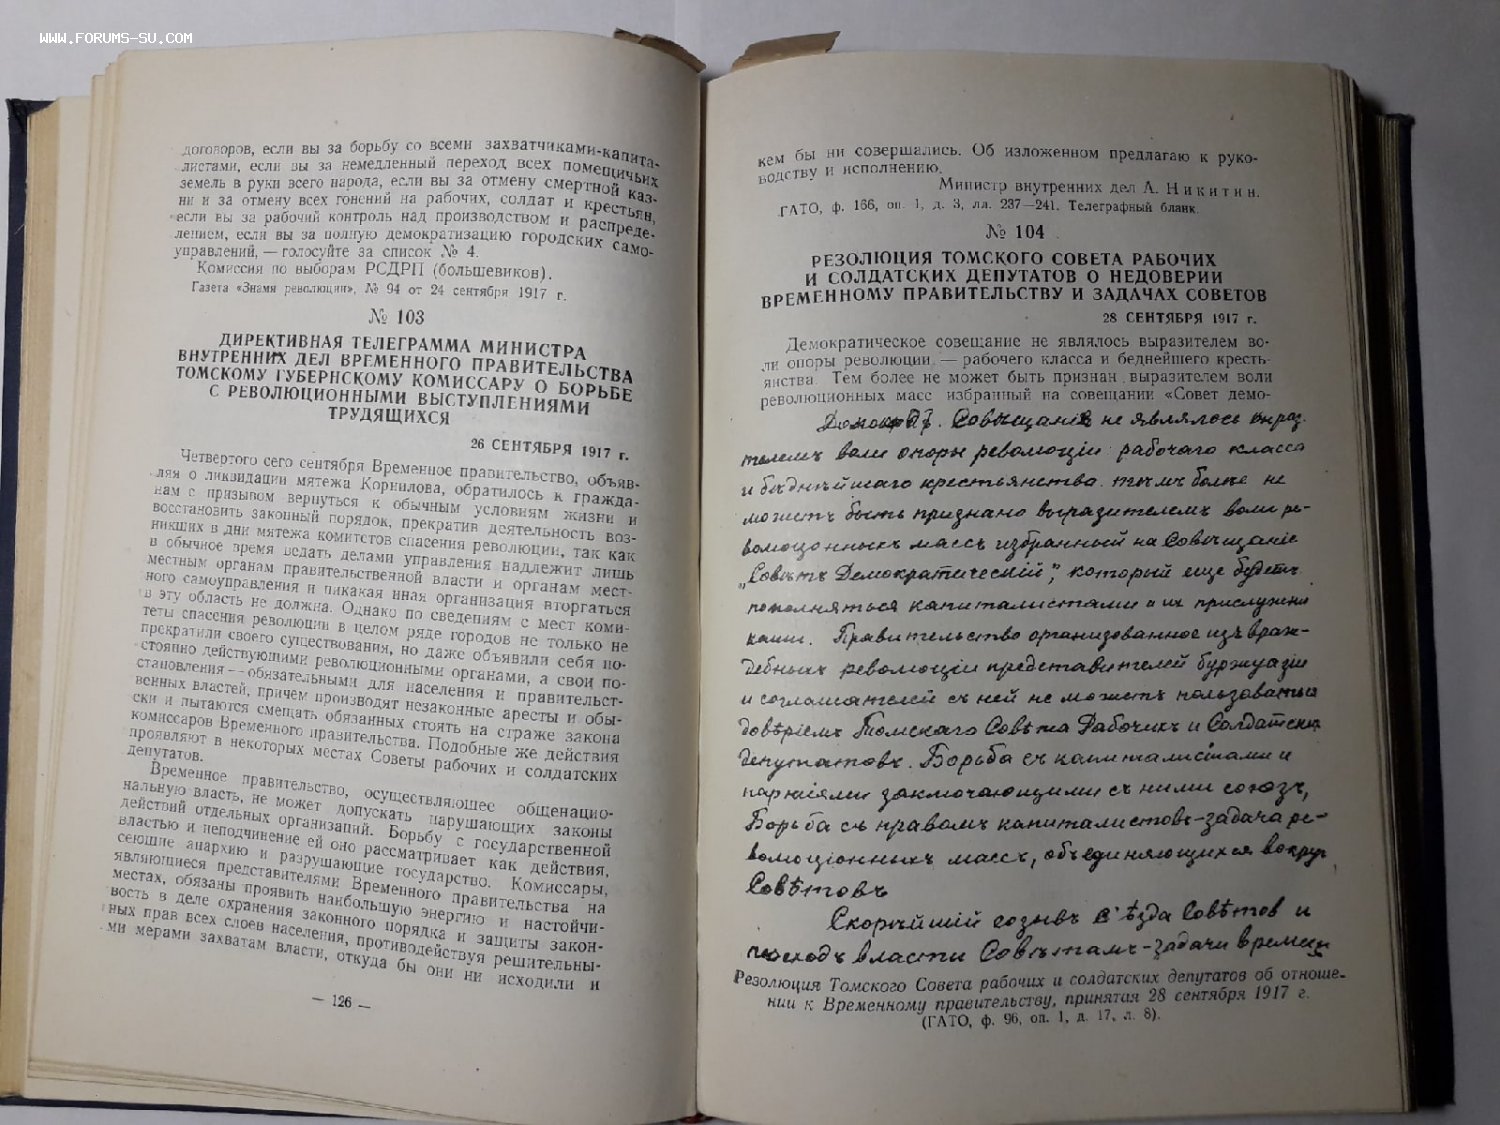 WWW.FORUMS-SU.COM
договоров, если вы за борьбу со всеми захватчиками-капита-
листами, если вы за немедленный переход всех помещичьих
земель в руки всего народа, если вы за отмену смертной каз-
ни и за отмену всех гонений на рабочих, солдат и крестьян,
если вы за рабочий контроль над производством и распреде-
лением, если вы за полную демократизацию городских само-
управлений, — голосуйте за список № 4.
Комиссия по выборам РСДРП (большевиков).
Газета «Знамя революции», № 94 от 24 сентября 1917 г.
№ 103
ДИРЕКТИВНАЯ ТЕЛЕГРАММА МИНИСТРА
ВНУТРЕННИХ ДЕЛ ВРЕМЕННОГО ПРАВИТЕЛЬСТВА
ТОМСКОМУ ГУБЕРНСКОМУ КОМИССАРУ О БОРЬБЕ
С РЕВОЛЮЦИОННЫМИ ВЫСТУПЛЕНИЯМИ
ТРУДЯЩИХСЯ
26 СЕНТЯБРЯ 1917 г.
Четвертого сего сентября Временное правительство, объяв-
ляя о ликвидации мятежа Корнилова, обратилось к гражда-
нам с призывом вернуться к обычным условиям жизни и
восстановить законный порядок, прекратив деятельность воз-
никших в дни мятежа комитетов спасения революции, так как
в обычное время ведать делами управления надлежит лишь
местным органам правительственной власти и органам мест-
ного самоуправления и никакая иная организация вторгаться
в эту область не должна. Однако по сведениям с мест коми-
теты спасения революции в целом ряде городов не только не
прекратили своего существования, но даже объявили себя по-
стоянно действующими революционными органами, а свои по-
становления — обязательными для населения и правительст-
венных властей, причем производят незаконные аресты и обы-
ски и пытаются смещать обязанных стоять на страже закона
комиссаров Временного правительства. Подобные же действия
проявляют в некоторых местах Советы рабочих и солдатских
депутатов.
Временное правительство, осуществляющее общенацио-
нальную власть, не может допускать нарушающих законы
действий отдельных организаций. Борьбу с государственной
властью и неподчинение ей оно рассматривает как действия,
сеющие анархию и разрушающие государство. Комиссары,
являющиеся представителями Временного правительства на
местах, обязаны проявить наибольшую энергию и настойчи-
вость в деле охранения законного порядка и защиты закон-
ных прав всех слоев населения, противодействуя решительны-
ми мерами захватам власти, откуда бы они ни исходили и
— 126 —
кем бы ни совершались. Об изложенном предлагаю к руко-
водству и исполнению.
Министр внутренних дел А. Никитин.
ГАТО, ф. 166, оп. 1, д. 3, лл. 237—241. Телеграфный бланк.
№ 104
РЕЗОЛЮЦИЯ ТОМСКОГО СОВЕТА РАБОЧИХ
И СОЛДАТСКИХ ДЕПУТАТОВ О НЕДОВЕРИИ
ВРЕМЕННОМУ ПРАВИТЕЛЬСТВУ И ЗАДАЧАХ СОВЕТОВ
28 СЕНТЯБРЯ 1917 г.
Демократическое совещание не являлось выразителем во-
ли опоры революции — рабочего класса и беднейшего кресть-
янства. Тем более не может быть признан выразителем воли
революционных масс избранный на совещании «Совет демо-
Совѣщаніе не являлось выраз.
телемъ воли опоры революціи: рабочаго класса
и бѣднѣйшаго крестьянства. тѣмъ болѣе не
можетъ быть признано выразителемъ воли ре-
волюціонныхъ массъ избранный на Совѣщаніе
„Совѣтъ Демократическій", который еще будетъ
пополняться капиталистами и их прислужни
ками. Правительство организованное изъ враж-
дебныхъ революціи представителей буржуазіи
и соглашателей съ ней не можетъ пользоваться
довѣріемъ Томскаго Совѣта Рабочих и Солдатских
депутатовъ. Борьба съ капиталистами и
партіями заключающими съ ними союзъ,
Борьба съ правомъ капиталистовъ-задача ре-
волюціонныхъ массъ, объединяющихся вокруг
Совѣтовъ
Скорѣйшій созывъ съѣзда Совѣтов и
переходъ власти Совѣтамъ-задачи времени
Резолюция Томского Совета рабочих и солдатских депутатов об отноше-
нии к Временному правительству, принятая 28 сентября 1917 г.
(ГАТО, ф. 96, оп. 1, д. 17, л. 8).